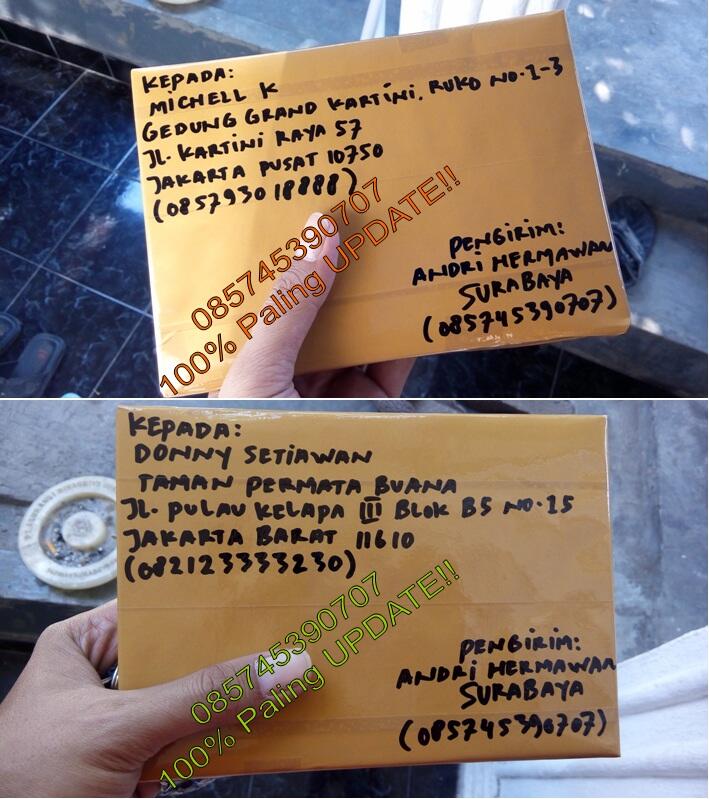 KEPADA:
MICHELL K
GEDUNG GRAND KARTINI, RUKO NO.1-3
JL. KARTINI RAYA 57
JAKARTA PUSAT 10750
(085793018888)
PENGIRIM:
ANDRI HERMAWAN
SURABAYA
(085745390707)
085745390707
100% Paling UPDATE!!
KEPADA:
DONNY SETIAWAN
TAMAN PERMATA BUANA
JL. PULAU KELAPA III BLOK B5 NO.15
JAKARTA BARAT 11610
(082123333230)
PENGIRIM:
ANDRI HERMAWAN
SURABAYA
(085745390707)
085745390707
100% Paling UPDATE!!